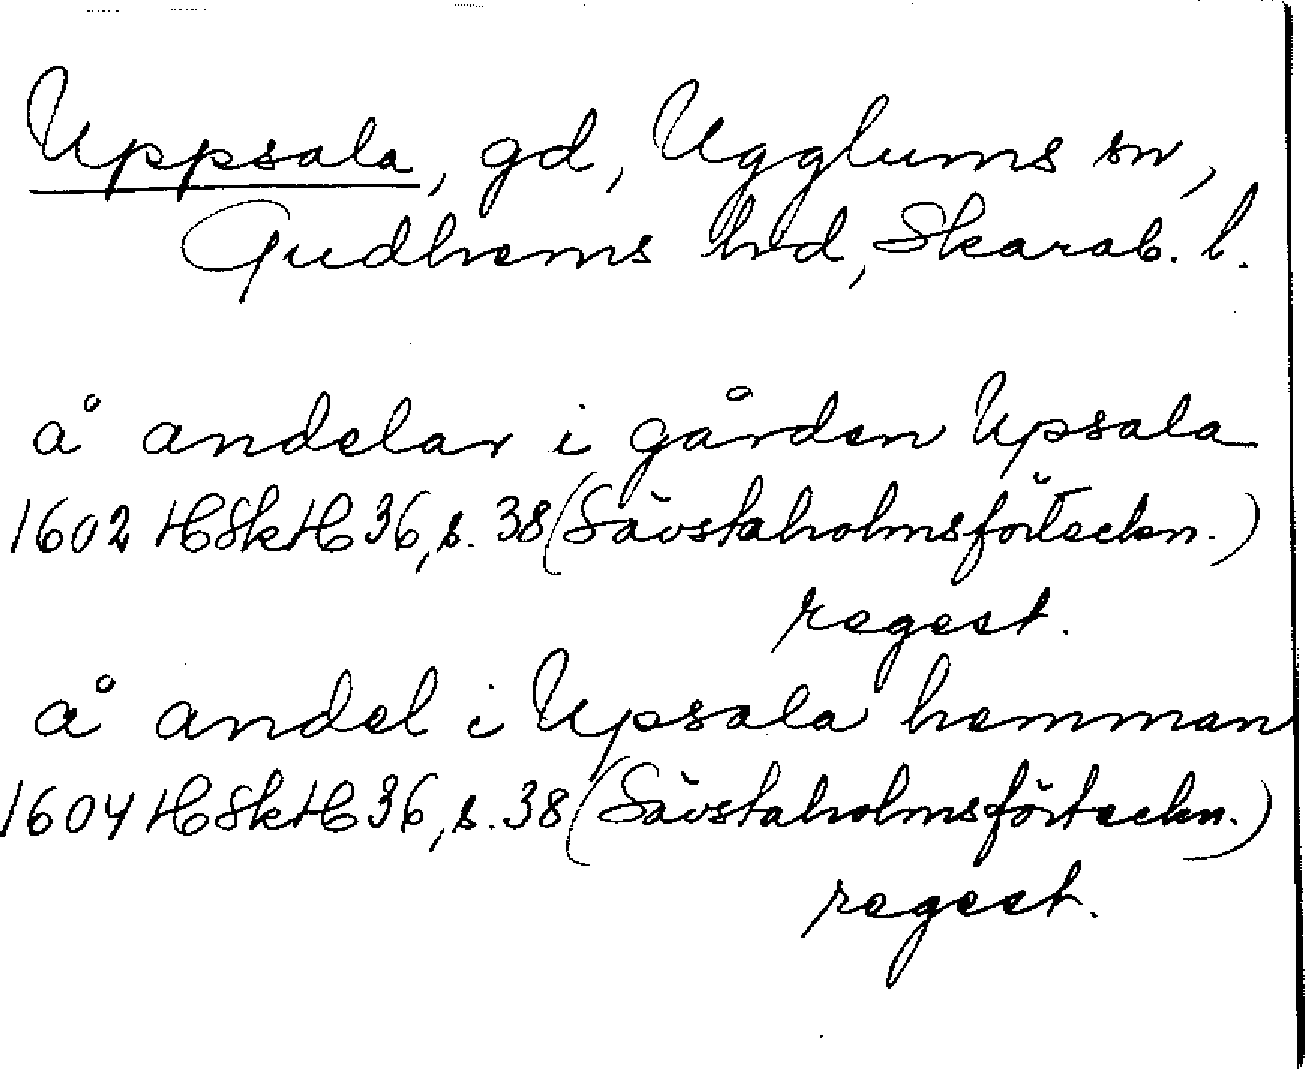 Uppsala, gd, Ugglums sn,
Gudhems hd, Skarab. l.
å andelar i gården Upsala
1602 HSkH 36, s. 38 (Sävstaholmsförteckn.)
regest.
å andel i Upsala hemman
1604 HSkH 36, s. 38 (Sävstaholmsförteckn.)
regest.